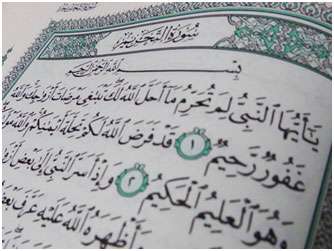 سُورَةُ التَّحْرِيمِ
بِسْمِ اللَّهِ الرَّحْمَٰنِ الرَّحِيمِ
يَا أَيُّهَا النَّبِيُّ لِمَ تُحَرِّمُ مَا أَحَلَّ اللَّهُ لَكَ تَبْتَغِي مَرْضَاتَ أَزْوَاجِكَ وَاللَّهُ
غَفُورٌ رَّحِيمٌ ١ قَدْ فَرَضَ اللَّهُ لَكُمْ تَحِلَّةَ أَيْمَانِكُمْ وَاللَّهُ
وَهُوَ الْعَلِيمُ الْحَكِيمُ ٢ وَإِذْ أَسَرَّ النَّبِيُّ إِلَىٰ بَعْضِ
وَأَظْهَرَهُ اللَّهُ عَلَيْهِ عَرَّفَ بَعْضَهُ